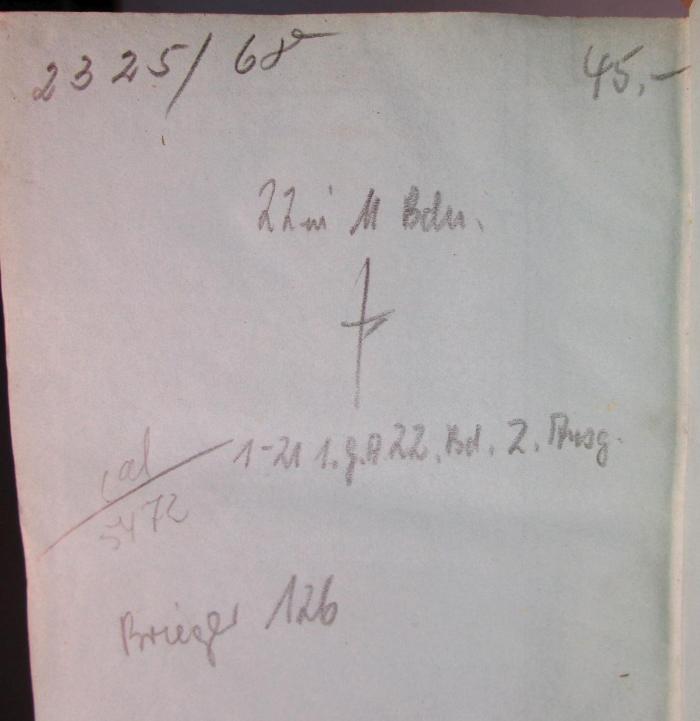 2325/68 45,-
22 in 11 Bdn.
1-21 1. g. A 22. Bd. 2. Ausg.
cal
5472
Brieger 126